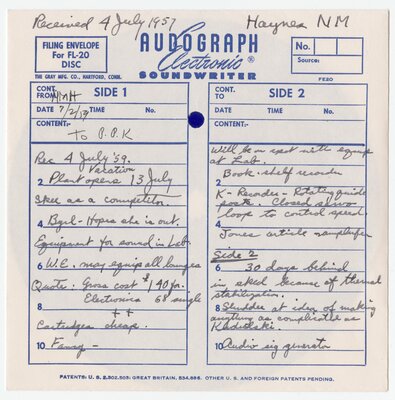 Received 4 July 1957
Haynes NM
FILING ENVELOPE
For FL-20
DISC
THE GRAY MFG. CO., HARTFORD, CONN.
AUDOGRAPH
Electronic ®
SOUNDWRITER
No.
Source:
FE20
CONT. FROM HMH SIDE 1
DATE 7/2/59 TIME No.
CONTENT:-
To B.B.K
Rec 4 July '59.
Vacation
2 Plant opens 13 July
as a competitor.
4 Bgrl - Hopes she is out.
Equipment for sound in Lab.
6 W.E. may equip all lounges
Quote: Gross cost $140 for.
8 Electronics 68 single
++
Cartridges cheap.
10 Fancy -
CONT. TO SIDE 2
DATE TIME No.
CONTENT:-
Will be on spot with equip
at Lab.
2 Book-shelf recorder
K- Recorder - Rotating guide
posts. Closed servo
loop to control speed.
4
Jones article
Side 2
6 30 days behind
in sked because of thermal
stabilization.
8 Shudder at idea of making
anything as complicated as
Kudelski.
10 Audio sig generator
PATENTS: U. S. 2,302,503: GREAT BRITAIN, 534,886. OTHER U. S. AND FOREIGN PATENTS PENDING.